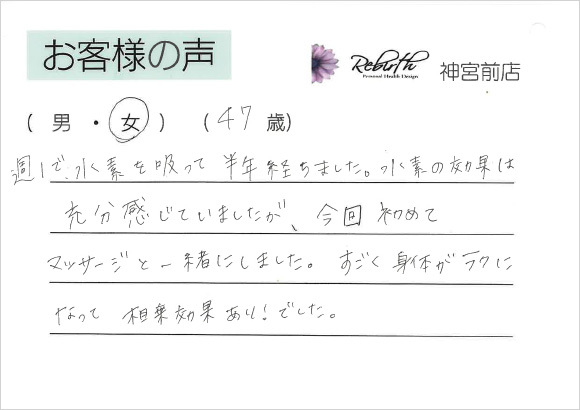 お客様の声
Rebirth
Personal Health Design
神宮前店
( 男 ・ 女 ) ( 47 歳)
週1で、水素を吸って 半年経ちました。水素の効果は
充分感じていましたが、今回 初めて
マッサージと一緒にしました。すごく身体がラクに
なって 相乗効果あり!でした。